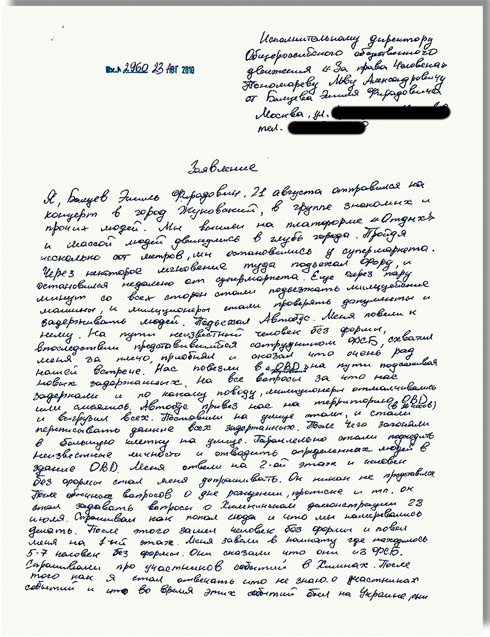 Исполнительному директору
Общероссийского общественного
движения «За права человека»
Пономареву Льву Александровичу
от Балуева Эмиля Фирадовича
Москва, ул.
тел.
Вх.№ 2960 23 АВГ 2010
Заявление
Я, Балуев Эмиль Фирадович, 21 августа отправился на
концерт в город Жуковский, в группе знакомых и
прочих людей. Мы вышли на платформе «Отдых»
и массой людей двинулись в глубь города. Пройдя
несколько сот метров, мы остановились у супермаркета.
Через некоторое мгновение туда подъехал Форд, и
остановился недалеко от супермаркета. Еще через пару
минут со всех сторон стали подъезжать милицейские
машины, и милиционеры стали проверять документы и
задерживать людей. Подъехал Автобус. Меня повели к
нему. На пути неизвестный человек без формы,
впоследствии представившийся сотрудником ФСБ, схватил
меня за плечо, приобнял и сказал что очень рад
нашей встрече. Нас повезли в ОВD на пути подсаживая
новых задержанных. На все вопросы за что нас
задержали и по какому поводу, милиционеры отмалчивались
или смеялись. Автобус привез нас на территорию ОВD
и выгрузил всех. Поставили на улице этапы, и стали
переписывать данные всех задержанных. После чего загоняли
в большую клетку на улице. Параллельно стали подходить
неизвестные личности и отводить определенных людей в
здание ОВD. Меня отвели на 2-ой этаж и человек
без формы стал меня допрашивать. Он никак не представился
После обычных вопросов о дне рождении, прописке и тп. он
стал задавать вопросы о Химкинской демонстрации 28
июля. Спрашивал как попал сюда и что мы намеривались
делать. После этого зашел человек без формы и повел
меня на 1-ый этаж. Меня завели в комнату где находилось
5-7 человек без формы. Они сказали что они из ФСБ.
Спрашивали про участников событий в Химках. После
того как я стал отвечать что не знаю о участниках
событий и что во время этих событий был на Украине, они